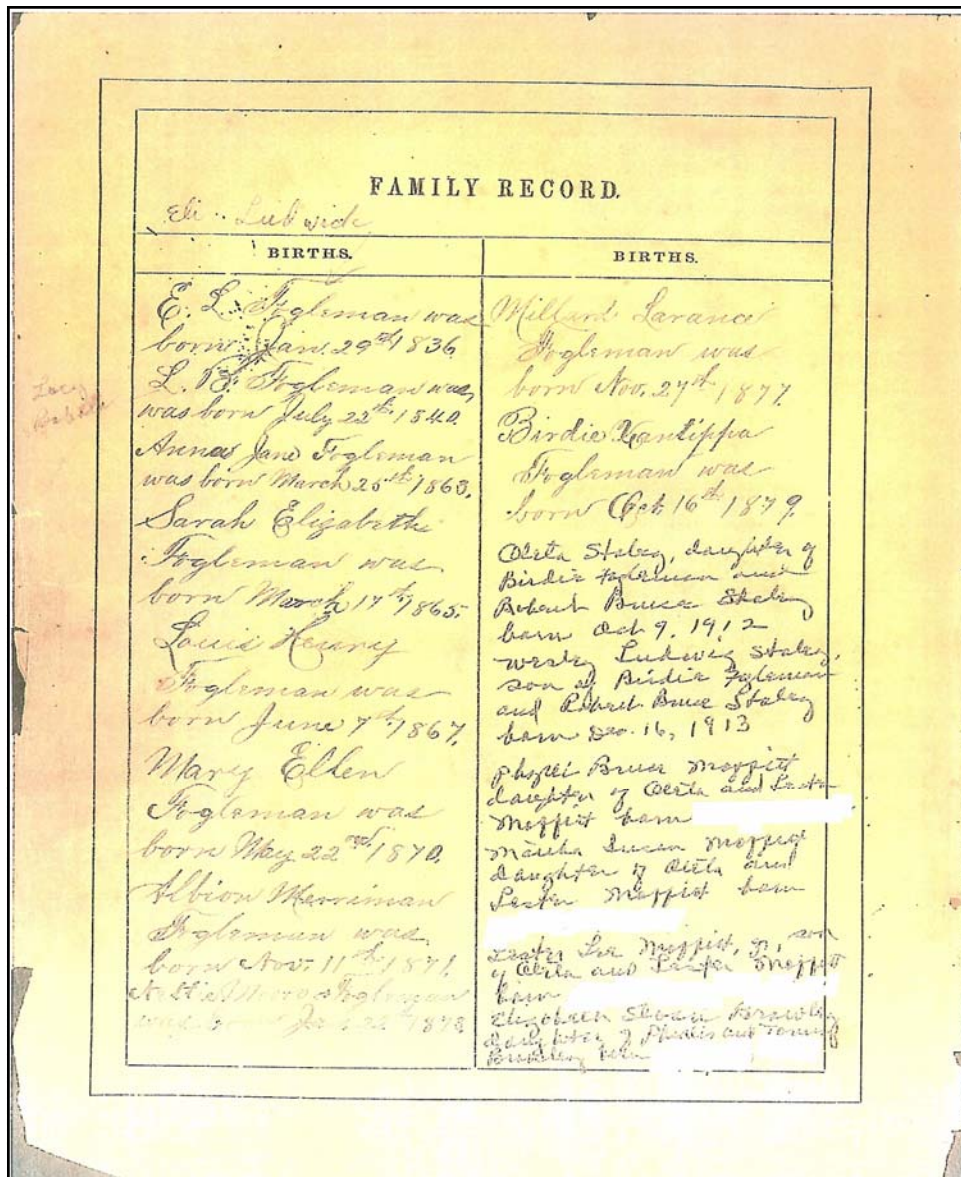 FAMILY RECORD.
Eli Ludwick
BIRTHS.
E. L. Fogleman was
born Jan. 29th 1836
L. B. Fogleman was,
was born July 22th 1840.
Anna Jane Fogleman
was born March 25th 1863.
Sarah Elizabeth
Fogleman was
born March 17th 1865.
Louis Henry
Fogleman was
born June 7th 1867.
Mary Ellen
Fogleman was
born May 22nd 1870.
Albion Merriman
Fogleman was
born Nov. 11th 1871.
Fogleman
was born 22
BIRTHS.
Millard Larance
Fogleman was
born Nov. 27th 1877.
Birdie Xantippa
Fogleman was
born Oct 16th 1879.
Oleta Staley, daughter of
Birdie Fogleman and
Robert Bruce Staley
born Oct 9, 1912
Wesley Ludwig Staley,
son of Birdie Fogleman
and Robert Bruce Staley
born Dec. 16, 1913
Bruce Moffitt
daughter of Oleta and Lester
Moffitt born
Martha Susan Moffitt
daughter of Oleta and
Lester Moffitt born
Lester Lee Moffitt, Jr., son
of Oleta and Lester Moffitt
born
Elizabeth
daughter of and
born